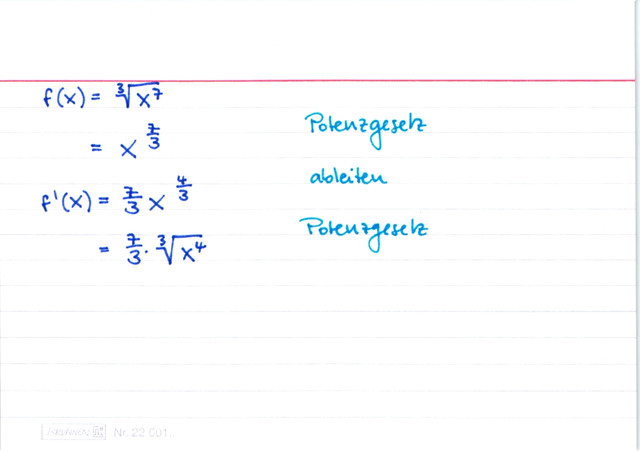 f(x) = ³√x⁷
Potenzgesetz
= x^(7/3)
ableiten
f'(x) = 7/3 x^(4/3)
Potenzgesetz
= 7/3 · ³√x⁴
Nr. 22 601